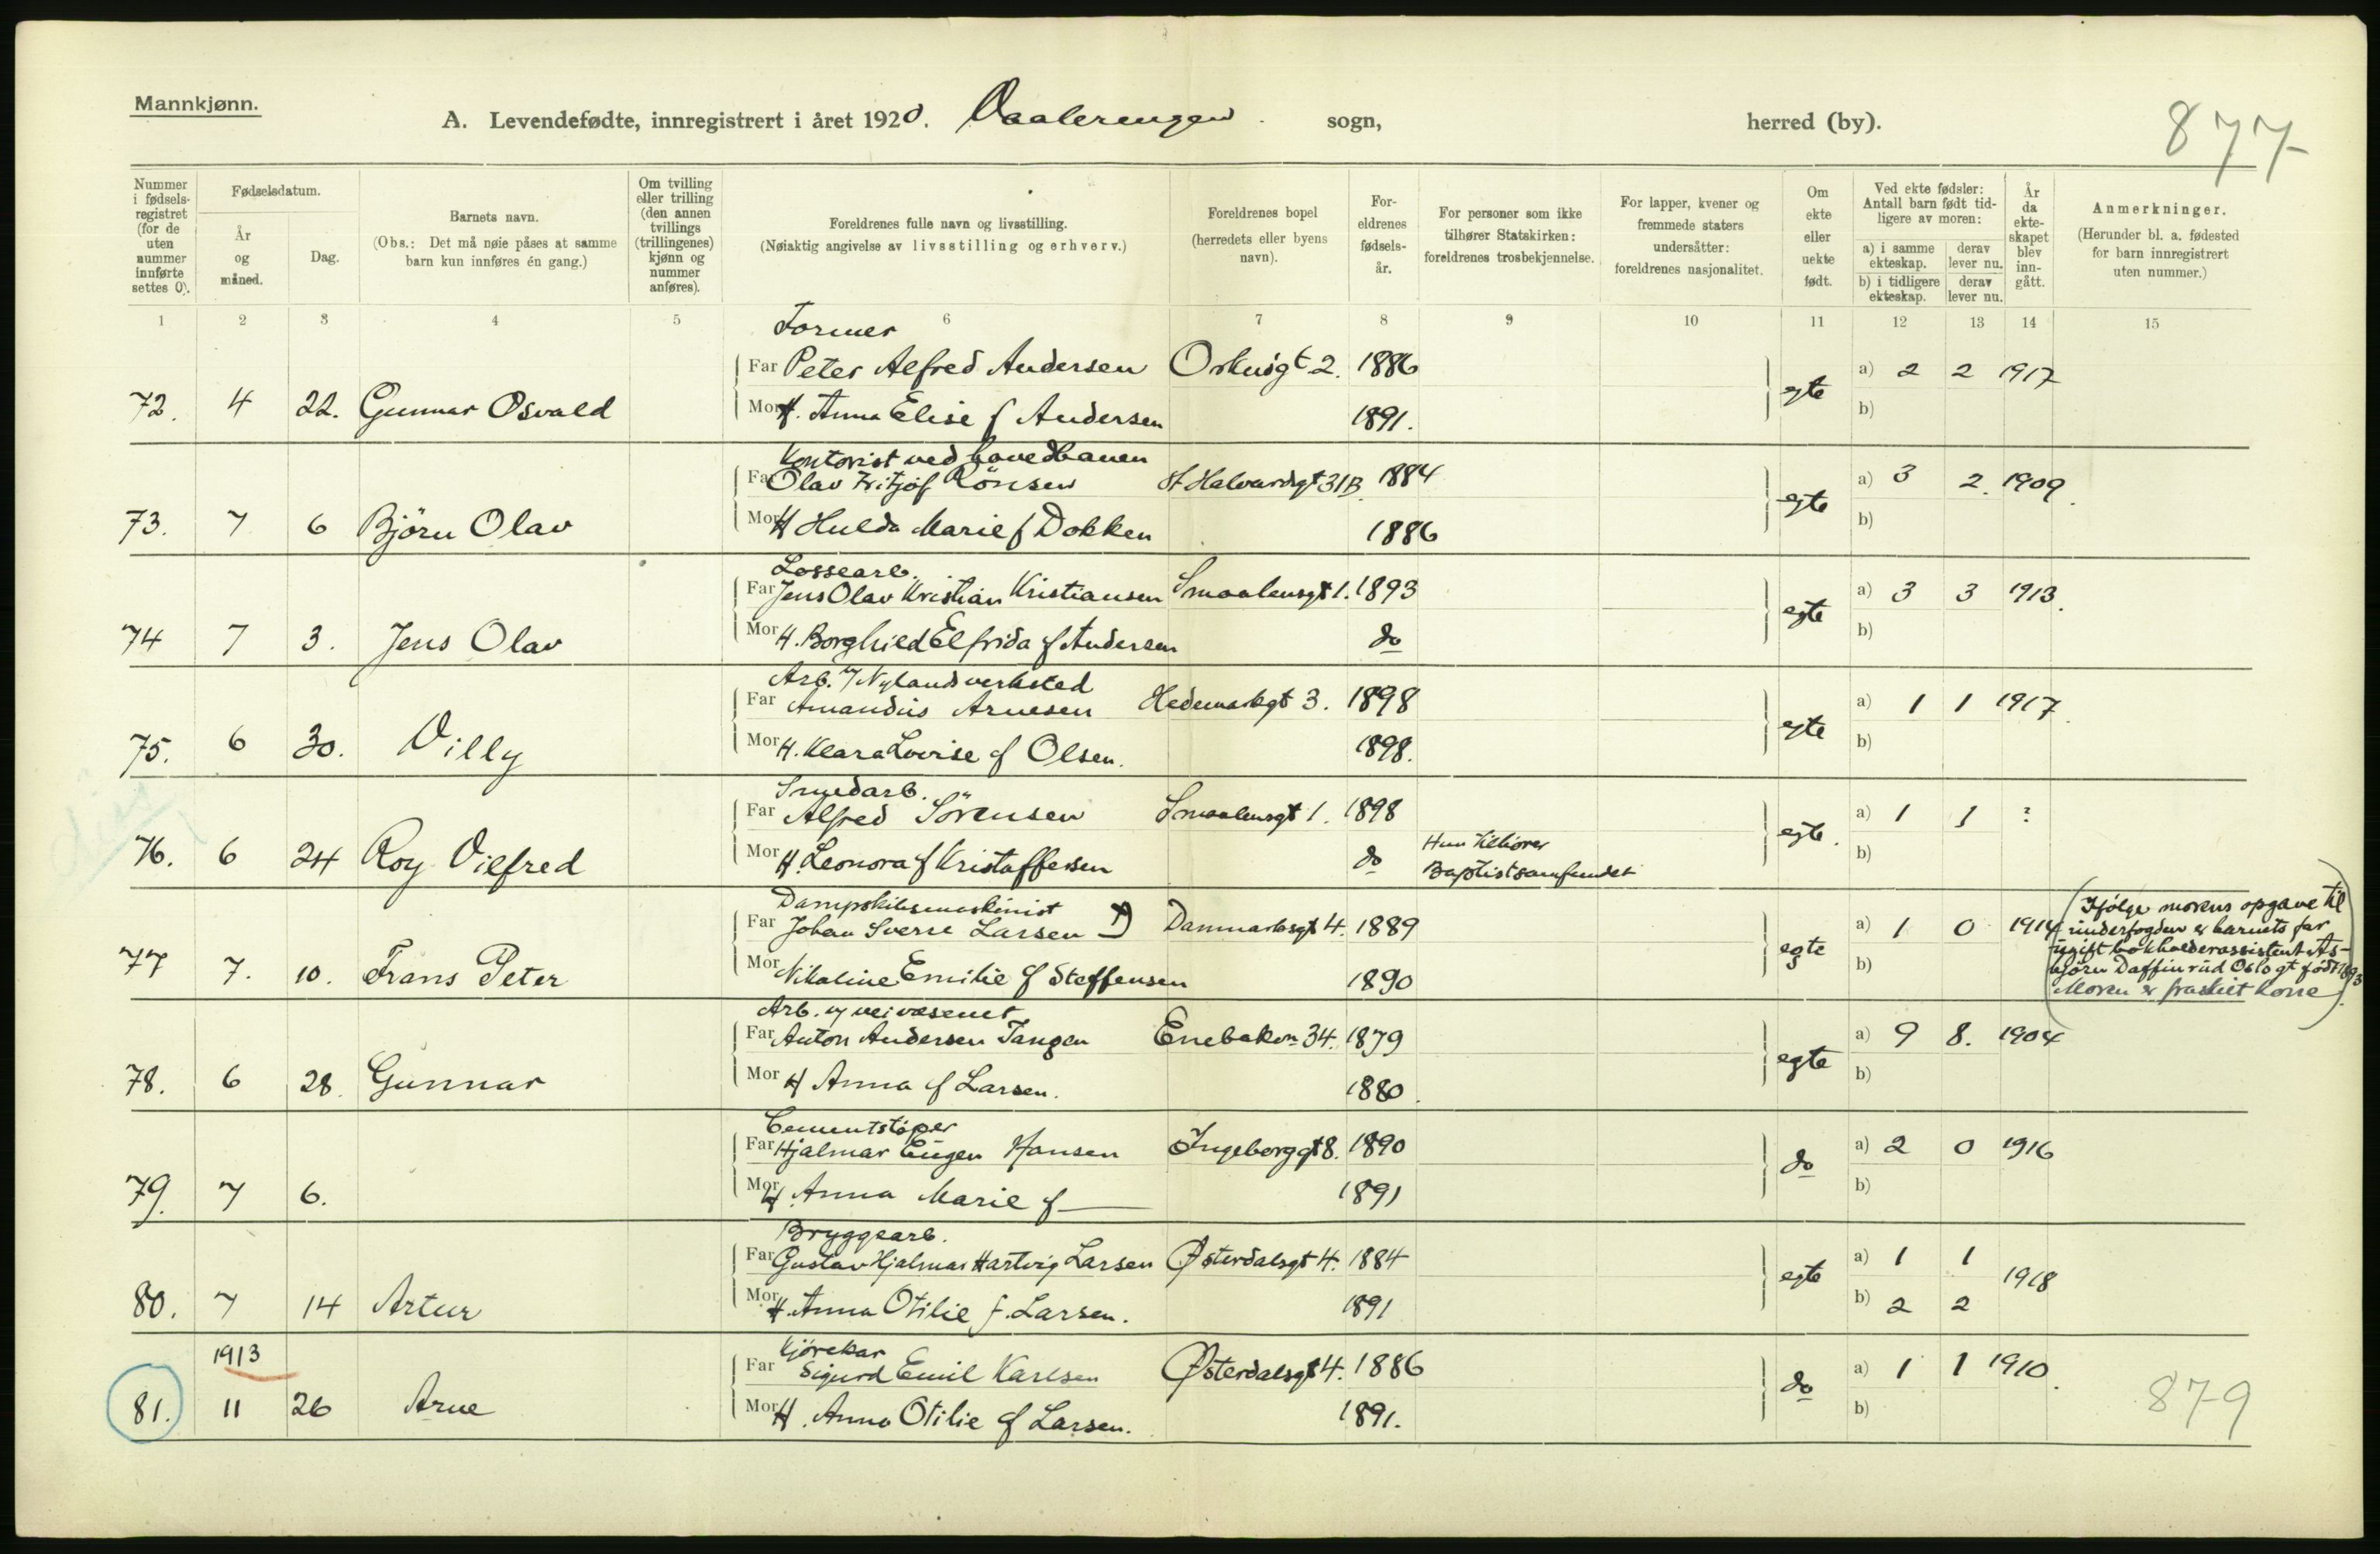 Mannkjønn.
A. Levendefødte, innregistrert i året 1920. Vaalerengen sogn, herred (by).
877
Nummer i fødselsregistret (for de uten nummer innførte settes 0).
Fødselsdatum.
År og måned.
Dag.
Barnets navn.
(Obs.: Det må nøie påses at samme barn kun innføres én gang.)
Om tvilling eller trilling (den annen tvillings (trillingenes) kjønn og nummer anføres).
Foreldrenes fulle navn og livsstilling.
(Nøiaktig angivelse av livsstilling og erhverv.)
Foreldrenes bopel (herredets eller byens navn).
Foreldrenes fødselsår.
For personer som ikke tilhører Statskirken: foreldrenes trosbekjennelse.
For lapper, kvener og fremmede staters undersåtter: foreldrenes nasjonalitet.
Om ekte eller uekte født.
Ved ekte fødsler: Antall barn født tidligere av moren:
a) i samme ekteskap. derav lever nu.
b) i tidligere ekteskap. derav lever nu.
År da ekteskapet blev inngått.
Anmerkninger.
(Herunder bl. a. fødested for barn innregistrert uten nummer.)
1 2 3 4 5 6 7 8 9 10 11 12 13 14 15
Former
Far Peter Alfred Andersen Orknøgt 2. 1886 a) 2 2 1917
72. 4 22. Gunnar Osvald egte
Mor H. Anna Elise f Andersen 1891. b)
Kontorist ved hovedbanen
Far Olav Fritjof Rönsen St Halvardsgt 31B. 1884 a) 3 2. 1909.
73. 7 6 Björn Olav egte
Mor H Hulda Marie f Dokken 1886 b)
Lossearb.
Far Jens Olav Kristian Kristiansen Smaalensgt 1. 1893 a) 3 3 1913.
74 7 3. Jens Olav egte
Mor H. Borghild Elfrida f Andersen do b)
Arb. v/ Nylands verksted
Far Amandus Arnesen Hedemarkgt 3. 1898 a) 1 1 1917.
75. 6 30. Villy egte
Mor H. Klara Lovise f Olsen. 1898. b)
Smedarb.
Far Alfred Sörensen Smaalensgt 1. 1898 a) 1 1 ?
76. 6 24 Roy Vilfred egte.
Mor H. Leonora f Kristoffersen do Hun tilhører Baptistsamfundet b)
Dampskibsmaskinist
Far Johan Sverre Larsen Danmarksgt 4. 1889 a) 1 0 1914
77 7. 10. Frans Peter egte
Mor Nikoline Emilie f Steffensen 1890 b)
(Ifölge morens opgave til
underfogden er barnets far
ugift bokholderassistent As-
björn Daffinrud Oslogt født 1893
Moren er fraskilt kone).
Arb. v/ veivæsenet
Far Anton Andersen Tangen Enebakvn 34. 1879 a) 9 8. 1904
78. 6 28. Gunnar egte
Mor H Anna f Larsen. 1880. b)
Cementstöper
Far Hjalmar Eugen Hansen Ingeborggt 8. 1890 a) 2 0 1916
79. 7 6. do
Mor H. Anna Marie f — 1891 b)
Bryggearb.
Far Gustav Hjalmar Hartvig Larsen Østerdalsgt 4. 1884 a) 1 1
80. 7 14 Artur egte 1918
Mor H. Anna Otilie f. Larsen. 1891 b) 2 2
1913 Kjörekar
Far Sigurd Emil Karlsen Østerdalsgt 4. 1886 a) 1 1 1910.
81. 11 26 Arne do
Mor H. Anna Otilie f Larsen. 1891. b)
879